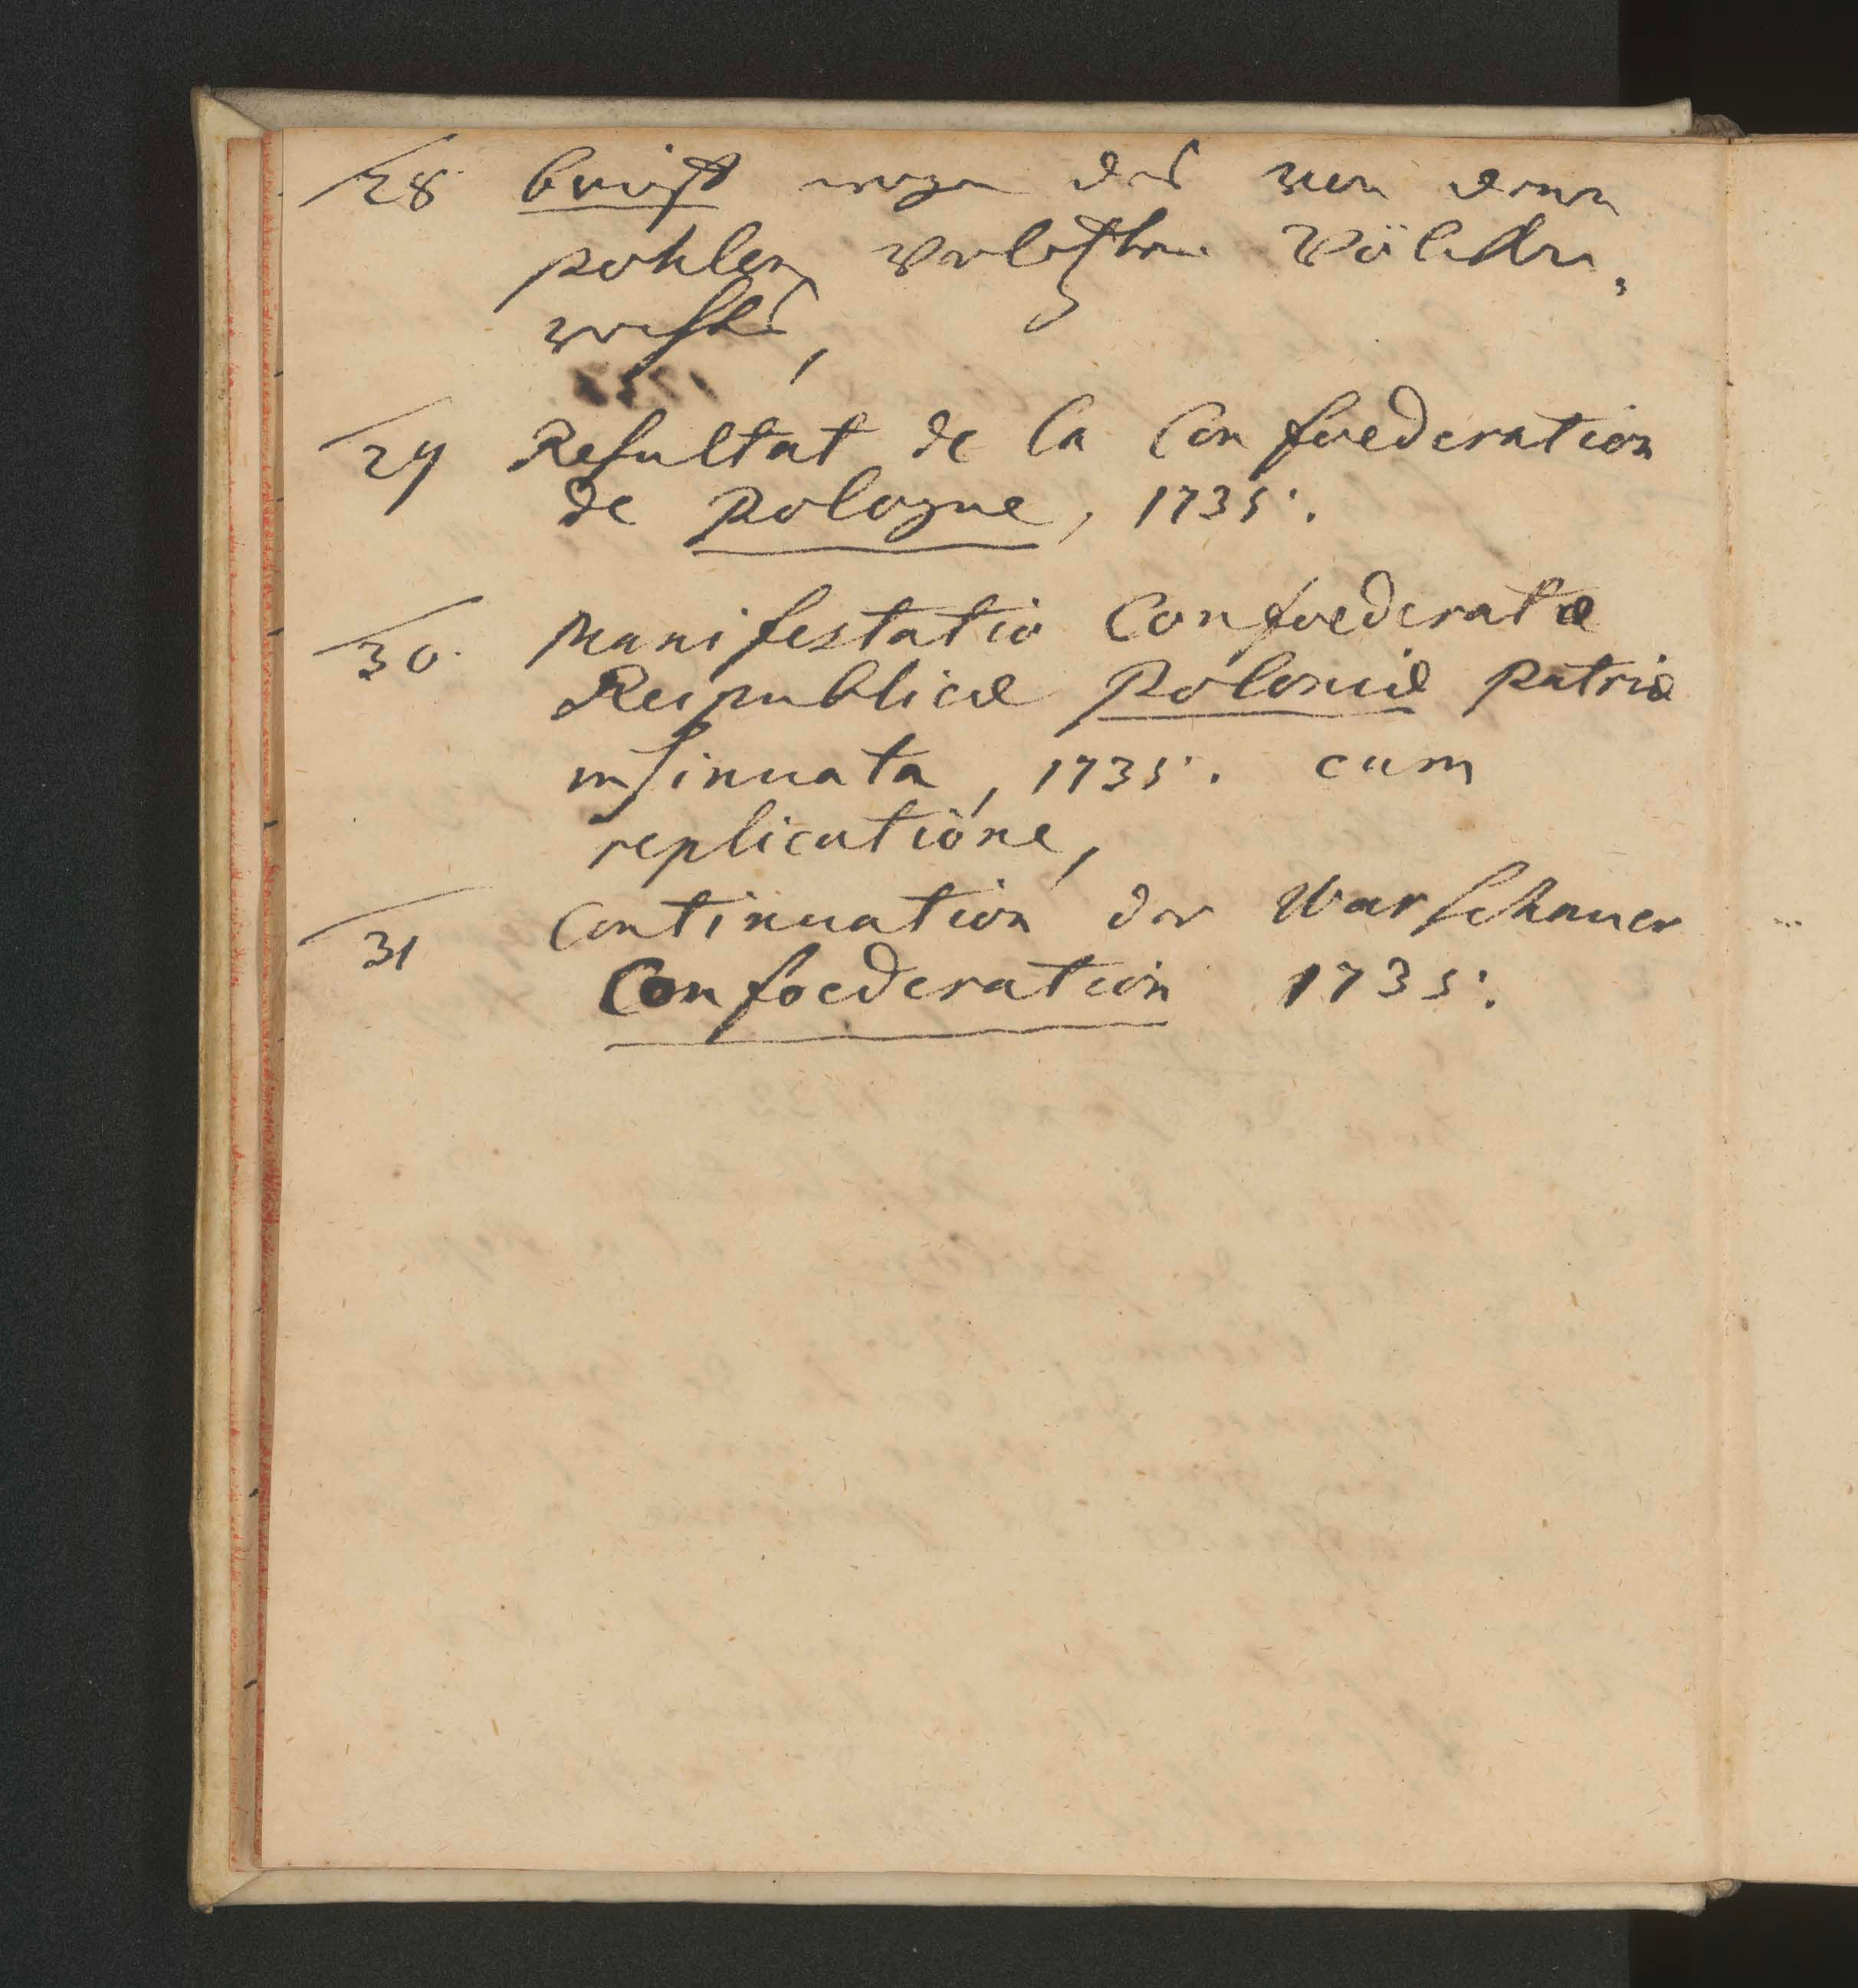 28 brieff wegen des von denen
pohlen verletzten Völcker,
rechts,
29 Resultat de la Confoederation
de pologne, 1735.
30. Manifestatio Confoederatæ
Reipublicæ poloniæ patriæ
insinuata, 1735. cum
replicatione,
31 Continuation der Warschauer
Confoederation 1735.